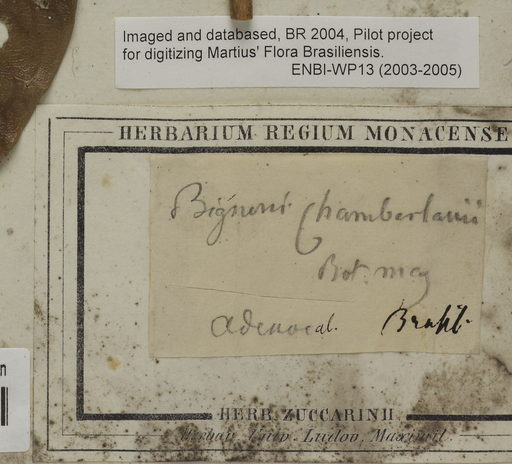 Imaged and databased, BR 2004, Pilot project
for digitizing Martius' Flora Brasiliensis.
ENBI-WP13 (2003-2005)
HERBARIUM REGIUM MONACENSE
Bignoni Chamberlanii
Bot. mag
adenocal. Brasil.
n
HERB. ZUCCARINII
Herbar. Univ. Ludov. Maximil.